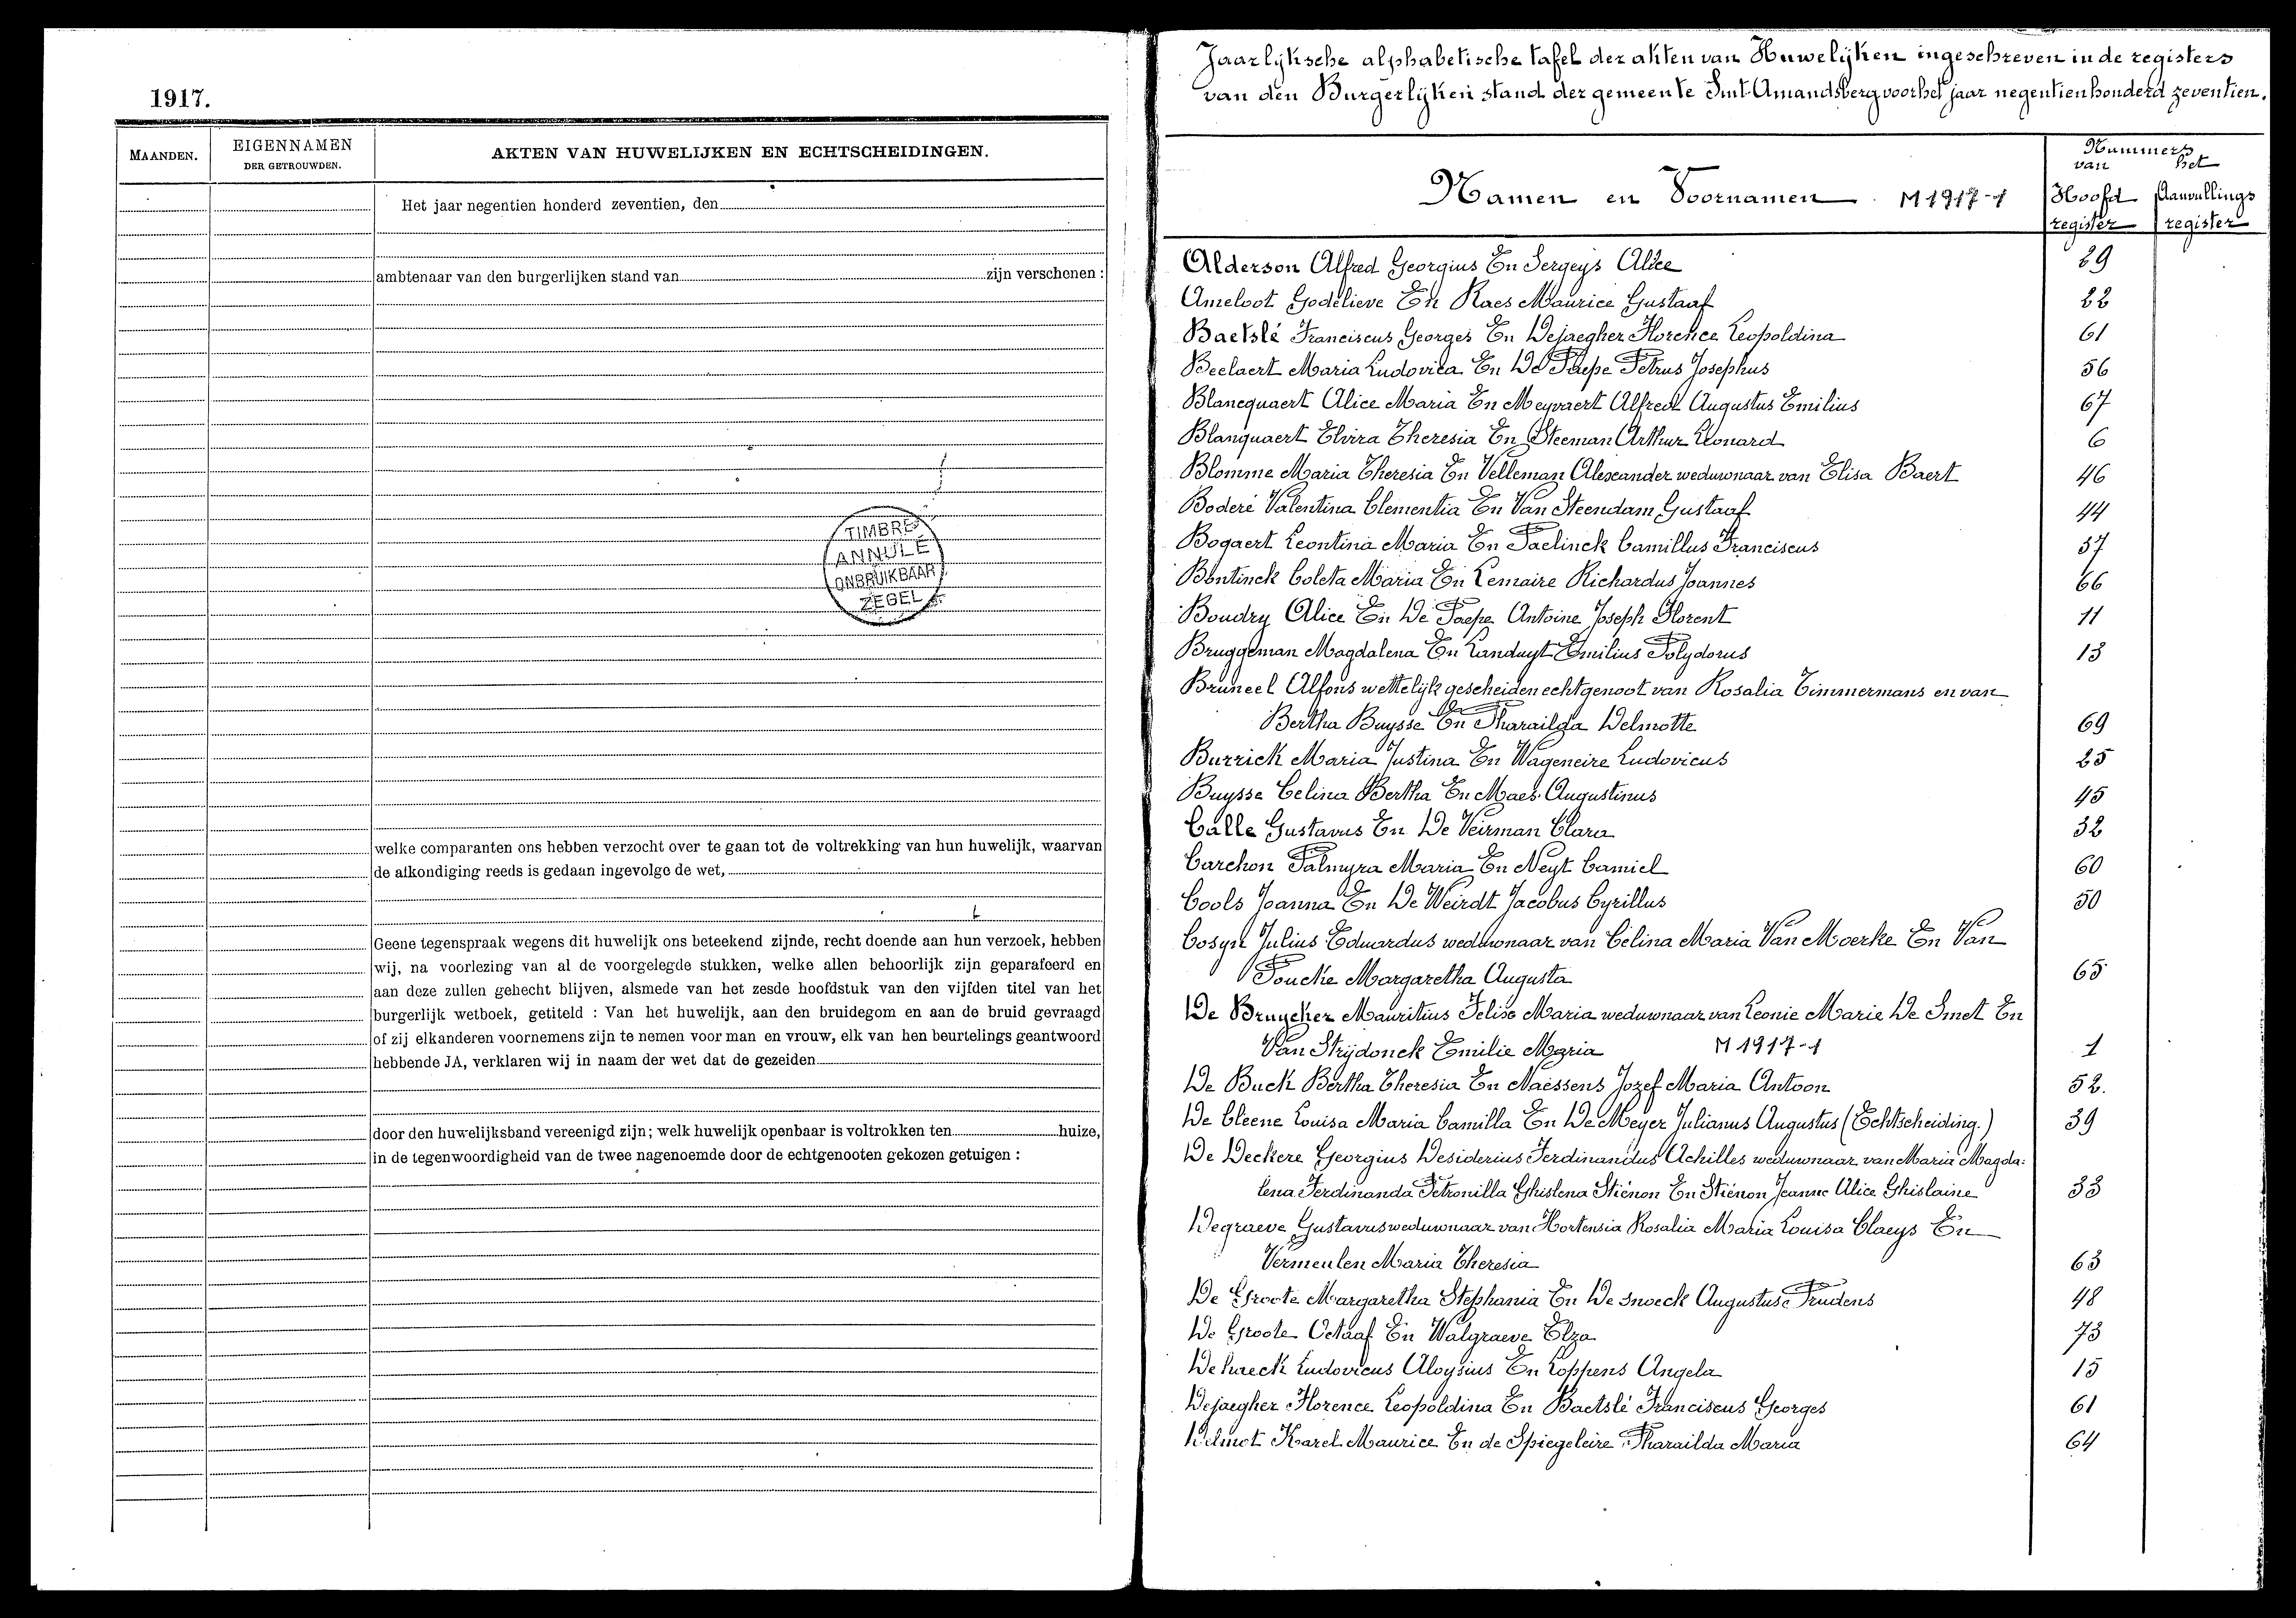 1917.
MAANDEN.
EIGENNAMEN
DER GETROUWDEN.
AKTEN VAN HUWELIJKEN EN ECHTSCHEIDINGEN.
Het jaar negentien honderd zeventien, den
ambtenaar van den burgerlijken stand van zijn verschenen :
TIMBRE
ANNULÉ
ONBRUIKBAAR
ZEGEL
welke comparanten ons hebben verzocht over te gaan tot de voltrekking van hun huwelijk, waarvan
de afkondiging reeds is gedaan ingevolge de wet,
Geene tegenspraak wegens dit huwelijk ons beteekend zijnde, recht doende aan hun verzoek, hebben
wij, na voorlezing van al de voorgelegde stukken, welke allen behoorlijk zijn geparafeerd en
aan deze zullen gehecht blijven, alsmede van het zesde hoofdstuk van den vijfden titel van het
burgerlijk wetboek, getiteld : Van het huwelijk, aan den bruidegom en aan de bruid gevraagd
of zij elkanderen voornemens zijn te nemen voor man en vrouw, elk van hen beurtelings geantwoord
hebbende JA, verklaren wij in naam der wet dat de gezeiden
door den huwelijksband vereenigd zijn; welk huwelijk openbaar is voltrokken ten huize,
in de tegenwoordigheid van de twee nagenoemde door de echtgenooten gekozen getuigen :
Jaarlijksche alphabetische tafel der akten van Huwelijken ingeschreven in de registers
van den Burgerlijken stand der gemeente Sint-Amandsberg voor het jaar negentienhonderd zeventien.
Namen en Voornamen M 1917-1
Nummers
van het
Hoofd Aanvullings
register register
Alderson Alfred Georgius En Sergeys Alice 29
Ameloot Godelieve En Raes Maurice Gustaaf 22
Baetslé Franciscus Georges En Dejaegher Florence Leopoldina 61
Beelaert Maria Ludovica En De Paepe Petrus Josephus 56
Blancquaert Alice Maria En Meyvaert Alfred Augustus Emilius 67
Blanquaert Elvira Theresia En Steeman Arthur Leonard 6
Blomme Maria Theresia En Velleman Alexander weduwnaar van Elisa Baert 46
Boderé Valentina Clementia En Van Steendam Gustaaf 44
Bogaert Leontina Maria En Paelinck Camillus Franciscus 37
Bontinck Coleta Maria En Lemaire Richardus Joannes 66
Boudry Alice En De Paepe Antoine Joseph Florent 11
Bruggeman Magdalena En Landuyt Emilius Polydorus 13
Bruneel Alfons wettelijk gescheiden echtgenoot van Rosalia Timmermans en van
Bertha Buysse En Pharaïlda Delmotte 69
Burrick Maria Justina En Wageneire Ludovicus 25
Buysse Celina Bertha En Maes Augustinus 45
Calle Gustavus En De Veirman Clara 32
Carchon Palmyra Maria En Neyt Camiel 60
Cools Joanna En De Weirdt Jacobus Cyrillus 50
Cosyn Julius Eduardus weduwnaar van Celina Maria Van Moerke En Van
Poucke Margaretha Augusta 65
De Bruycker Mauritius Felix Maria weduwnaar van Leonie Marie De Smet En
Van Strijdonck Emilie Maria M 1917-1 1
De Buck Bertha Theresia En Naessens Jozef Maria Antoon 52.
De Cleene Louisa Maria Camilla En De Meyer Julianus Augustus (Echtscheiding.) 39
De Deckere Georgius Desiderius Ferdinandus Achilles weduwnaar van Maria Magda:
lena Ferdinanda Petronilla Ghislena Stiénon En Stiénon Jeanne Alice Ghislaine 33
Degraeve Gustavus weduwnaar van Hortensia Rosalia Maria Louisa Claeys En
Vermeulen Maria Theresia 63
De Groote Margaretha Stephania En De Snoeck Augustus Prudens 48
De Groote Octaaf En Walgraeve Elza 73
Ludovicus Aloysius En Coppens Angela 15
Dejaegher Florence Leopoldina En Baetslé Franciscus Georges 61
Delmot Karel Maurice En de Spiegeleire Pharaïlda Maria 64